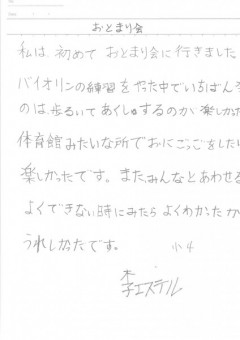 おとまり会
私は、初めて おとまり会に行きました
バイオリンの練習をやった中でいちばん
のは、歩るいてあくしゅするのが楽しかっ
体育館みたいな所でおにごっごをしたい
楽しかったです。またみんなとあわせる
よくできない時にみたらよくわかったか
うれしかったです。 小4
李エステル